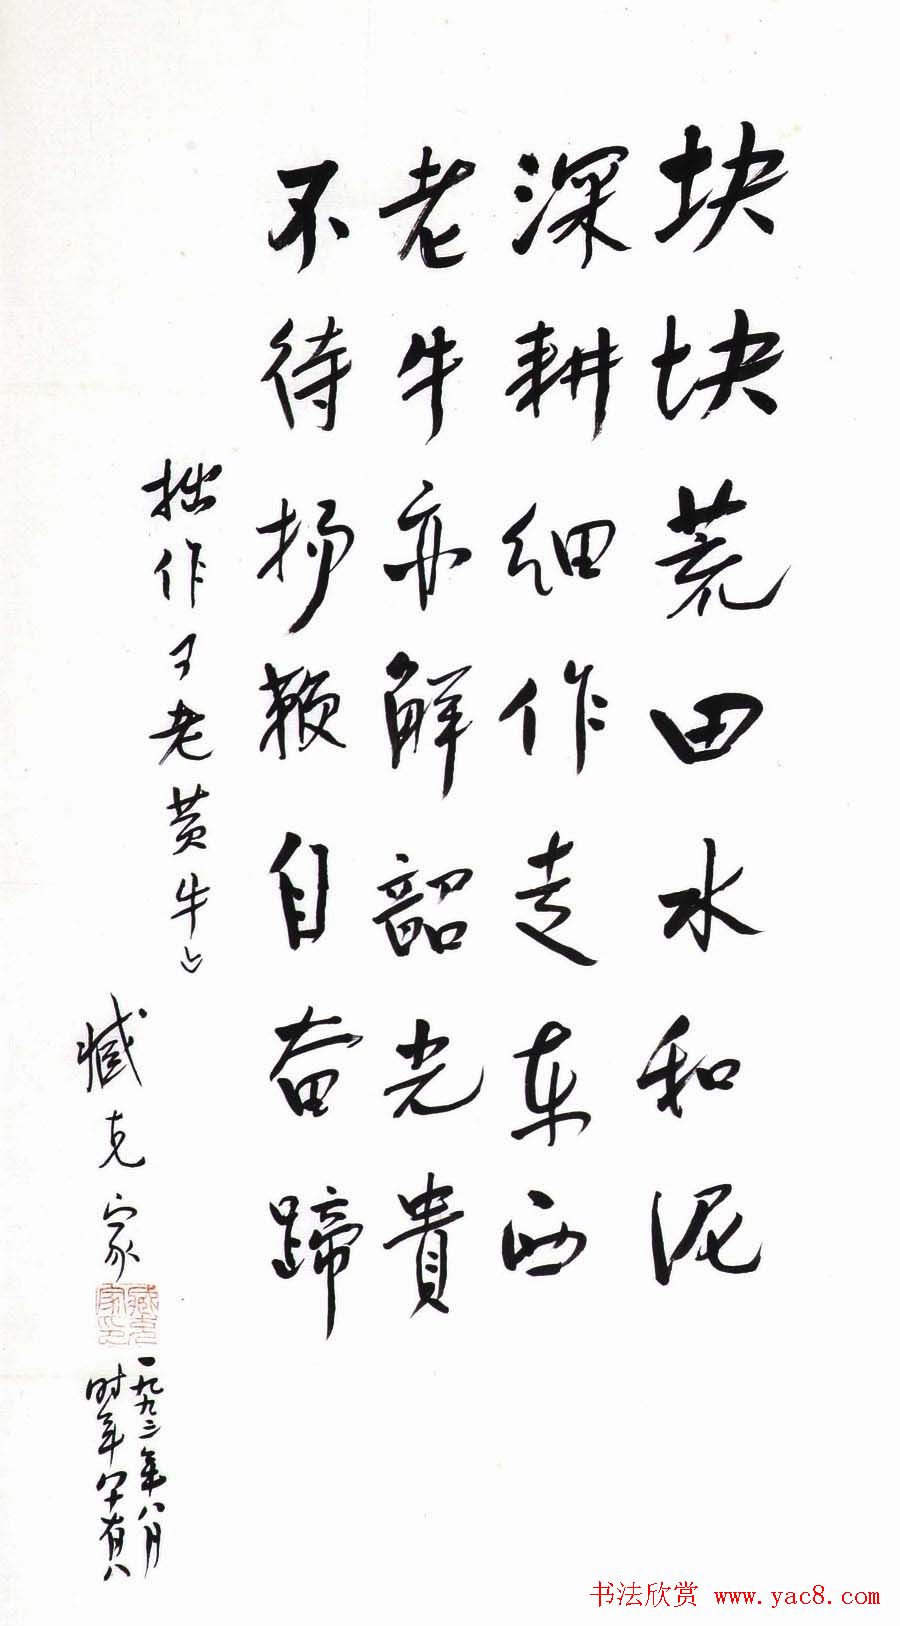 块块荒田水和泥
深耕细作走东西
老牛亦解韶光贵
不待扬鞭自奋蹄
拙作《老黄牛》
臧克家
臧克家印
一九九二年八月
时年八十有八
书法欣赏 www.yac8.com